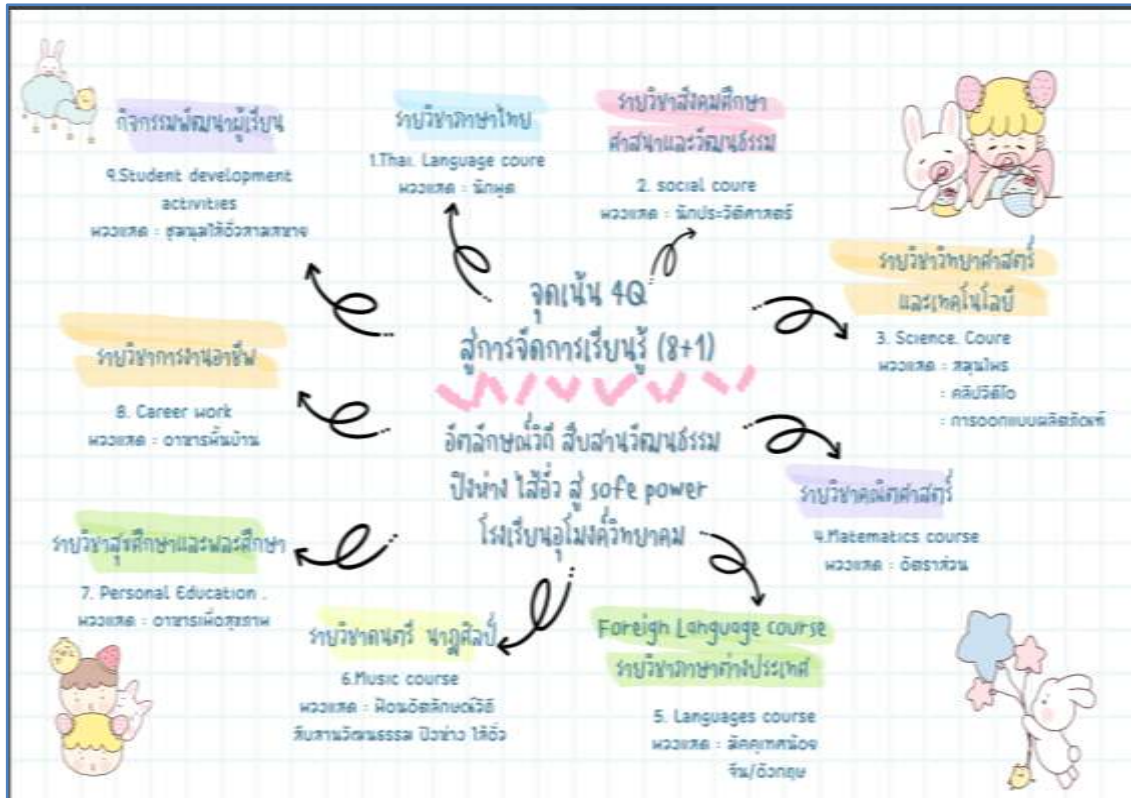 จุดเน้น 4Q
สู่การจัดการเรียนรู้ (8+1)
อัตลักษณ์วิถี สืบสานวัฒนธรรม
ปิงห่าง ไส้อั่ว สู่ sofe power
โรงเรียนอุโมงค์วิทยาคม
รายวิชาภาษาไทย
1.Thai. Language coure
: นักพูด
รายวิชาสังคมศึกษา
ศาสนาและวัฒนธรรม
2. social coure
: นักประวัติศาสตร์
รายวิชาวิทยาศาสตร์
และเทคโนโลยี
3. Science. Coure
: สมุนไพร
: คลิปวีดีโอ
: การออกแบบผลิตภัณฑ์
รายวิชาคณิตศาสตร์
4.Matematics course
: อัตราส่วน
Foreigh Language course
รายวิชาภาษาต่างประเทศ
5. Languages course
: มัคคุเทศน้อย
จีน/อังกฤษ
รายวิชาดนตรี นาฏศิลป์
6.Music course
: ฟ้อนอัตลักษณ์วิถี
สืบสานวัฒนธรรม ปิงห่าง ไส้อั่ว
รายวิชาสุขศึกษาและพละศึกษา
7. Personal Education .
: อาหารเพื่อสุขภาพ
รายวิชาการงานอาชีพ
8. Career work
: อาหารพื้นบ้าน
กิจกรรมพัฒนาผู้เรียน
9.Student development
activities
: ชุมนุมไส้อั่วสามสหาย